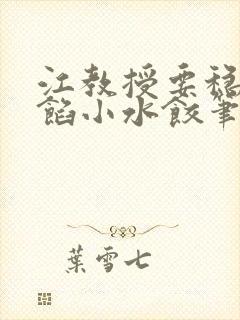 江教授要稳
馅小水饺笔
葉雪七